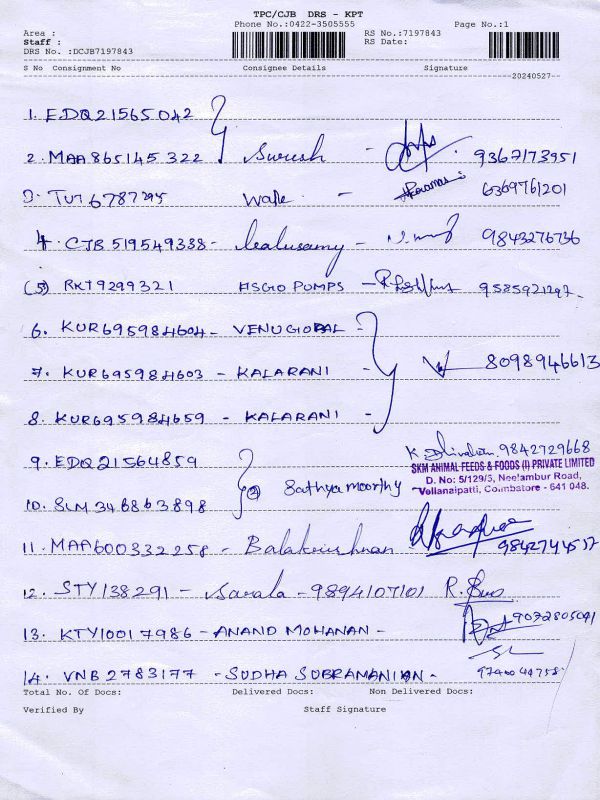 TPC/CJB DRS - KPT
Phone No.:0422-3505555 Page No.:1
Area :
Staff :
DRS No. :DCJB7197843
RS No.:7197843
RS Date:
S No Consignment No Consignee Details Signature
20240527
1. EDQ21565042
2. MAA 865145322 Suresh - 9367173951
3. TUT 6787295 - 6369761201
4 CJB 519549338 - - 9843276736
(5) RKT9299321 HSGO PUMPS - 9585921292
6. KUR695984604 - VENUGOPAL -
7. KUR695984603 - KALARANI - 8098946613
8. KUR695984659 - KALARANI -
9842729668
9. EDQ 21564859
SKM ANIMAL FEEDS & FOODS (I) PRIVATE LIMITED
D. No: 5/129/3, Neelambur Road,
Vellanaipatti, Coimbatore - 641 048.
(2) Sathyamoorthy
10. SLM 346863898
11. MAA600332258 - Balakrishnan 9842744517
12. STY138291 - Sarala - 9894107101
13. KTY10017986 - ANAND MOHANAN - 9072805041
14. VNB 2783177 - SUDHA SUBRAMANIAN -
Total No. Of Docs: Delivered Docs: Non Delivered Docs:
Verified By Staff Signature